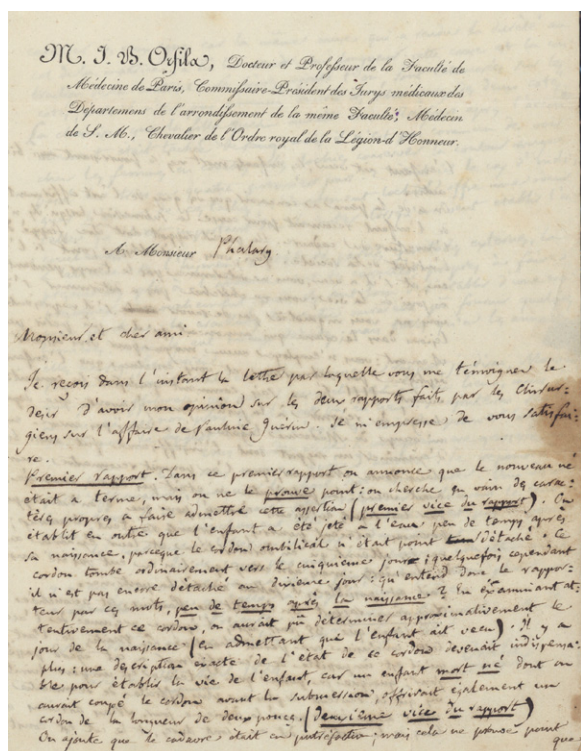 M. J. B. Orfila, Docteur et Professeur de la Faculté de
Médecine de Paris, Commissaire-Président des Jurys médicaux des
Départemens de l'arrondissement de la même Faculté, Médecin
de S. M., Chevalier de l'Ordre royal de la Légion-d'Honneur.
A Monsieur
Monsieur et cher ami
Je reçois dans l'instant la lettre par laquelle vous me témoignez le
desir d'avoir mon opinion sur les deux rapports faits par les chirur=
giens sur l'affaire de Pauline Guerin. Je m'empresse de vous satisfai=
re.
Premier rapport. Dans ce premier rapport on annonce que le nouveau né
était a terme, mais on ne le prouve point: on cherche en vain des carac=
tères propres a faire admettre cette assertion (premier vice du rapport). On
établit en outre que l'enfant a été jeté a l'eau peu de temps après
sa naissance, parceque le cordon ombilical n'était point détaché. Ce
cordon tombe ordinairement vers le cinquieme jour; quelquefois cependant
il n'est pas encore détaché au dixieme jour: qu'entend donc le rappor=
teur par ces mots, peu de temps après la naissance? En examinant at=
tentivement ce cordon, on aurait pu déterminer approximativement le
jour de la naissance (en admettant que l'enfant ait vecu). Il y a
plus: une description exacte de l'état de ce cordon devenait indispensa=
ble pour établir la vie de l'enfant, car un enfant mort né dont on
aurait coupé le cordon avant la submersion, offrirait également un
cordon de la longueur de deux pouces. (deuxième vice du rapport)
On ajoute que le cadavre était en putréfaction; mais cela ne prouve point
que